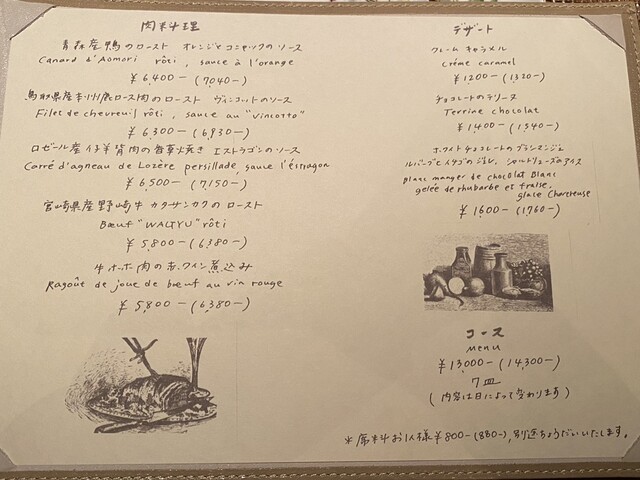 肉料理
青森産鴨のロースト オレンジとコニャックのソース
Canard d'Aomori rôti, sauce à l'orange
¥6,400-(7040-)
鳥取県産本州鹿ロース肉のロースト ヴィンコットのソース
Filet de chevreuil rôti, sauce au "vincotto"
¥6,300-(6,930-)
ロゼール産仔羊背肉の香草焼き エストラゴンのソース
Carré d'agneau de Lozère persillade, sauce l'éstragon
¥6,500-(7,150-)
宮崎県産野崎牛 カクサンカクのロースト
Bœuf "WAGYU" rôti
¥5,800-(6,380-)
牛ホホ肉の赤ワイン煮込み
Ragoût de joue de bœuf au vin rouge
¥5,800-(6,380-)
デザート
クレーム キャラメル
Créme caramel
¥1200-(1320-)
チョコレートのテリーヌ
Terrine chocolat
¥1,400-(1,540-)
ホワイトチョコレートのブランマンジェ
ルバーブとイチゴのジュレ、シャルトリューズのアイス
Blanc manger de chocolat Blanc
gelée de rhubarbe et fraise,
glace Chartreuse
¥1600-(1760-)
コース
Menu
¥13,000-(14,300-)
7皿
(内容は日によって変わります)
*席料お1人様¥800-(880-), 別途ちょうだいいたします。